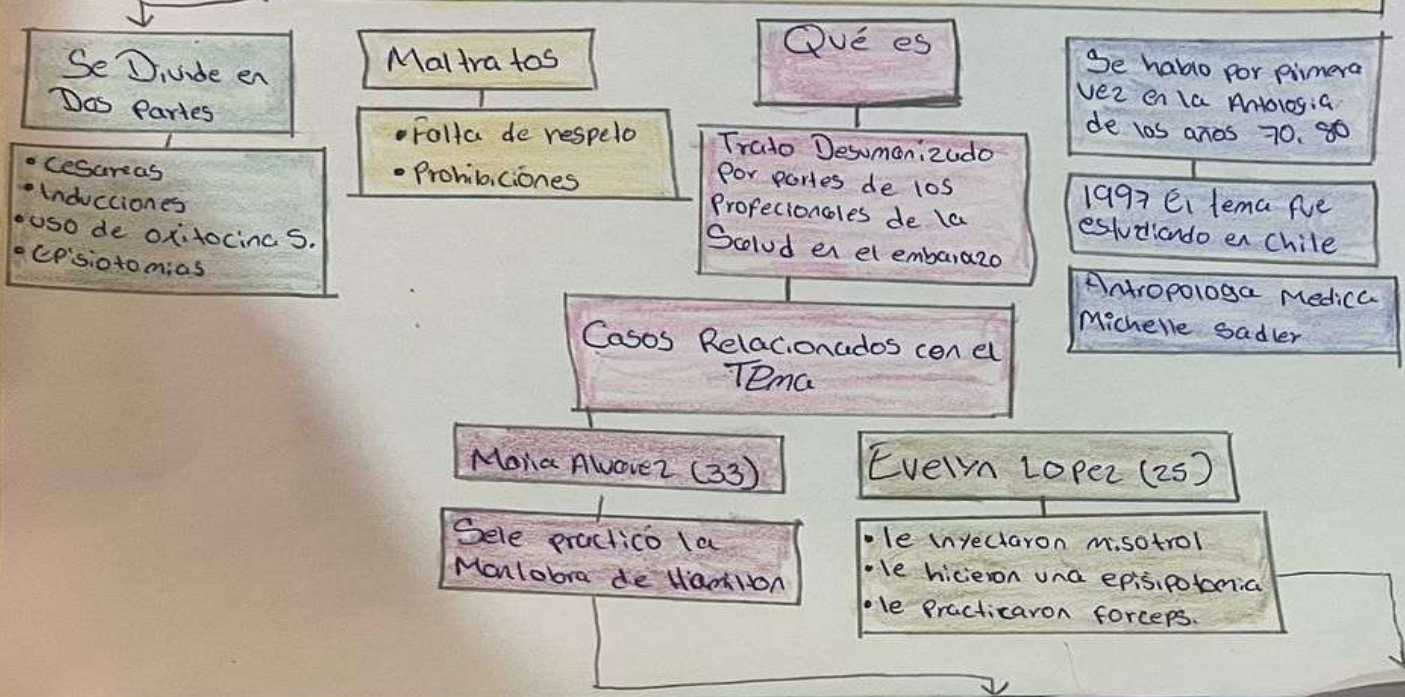 Se Divide en
Dos Partes
• Cesareas
• Inducciones
• USO de oxitocina S.
• Episiotomias
Maltratos
• Falta de respeto
• Prohibiciónes
Qué es
Trato Desumanizado
Por partes de los
Profecionales de la
Salud en el embarazo
Se hablo por primera
vez en la Antologia
de los años 70, 80
1997 El tema fue
estudiando en Chile
Antropologa Medica
Michelle Sadler
Casos Relacionados con el
TEma
Maria Alvarez (33)
Sele practicó la
Maniobra de Hamilton
Evelyn Lopez (25)
• le inyectaron misotrol
• le hicieron una episipotomia
• le Practicaron forceps.